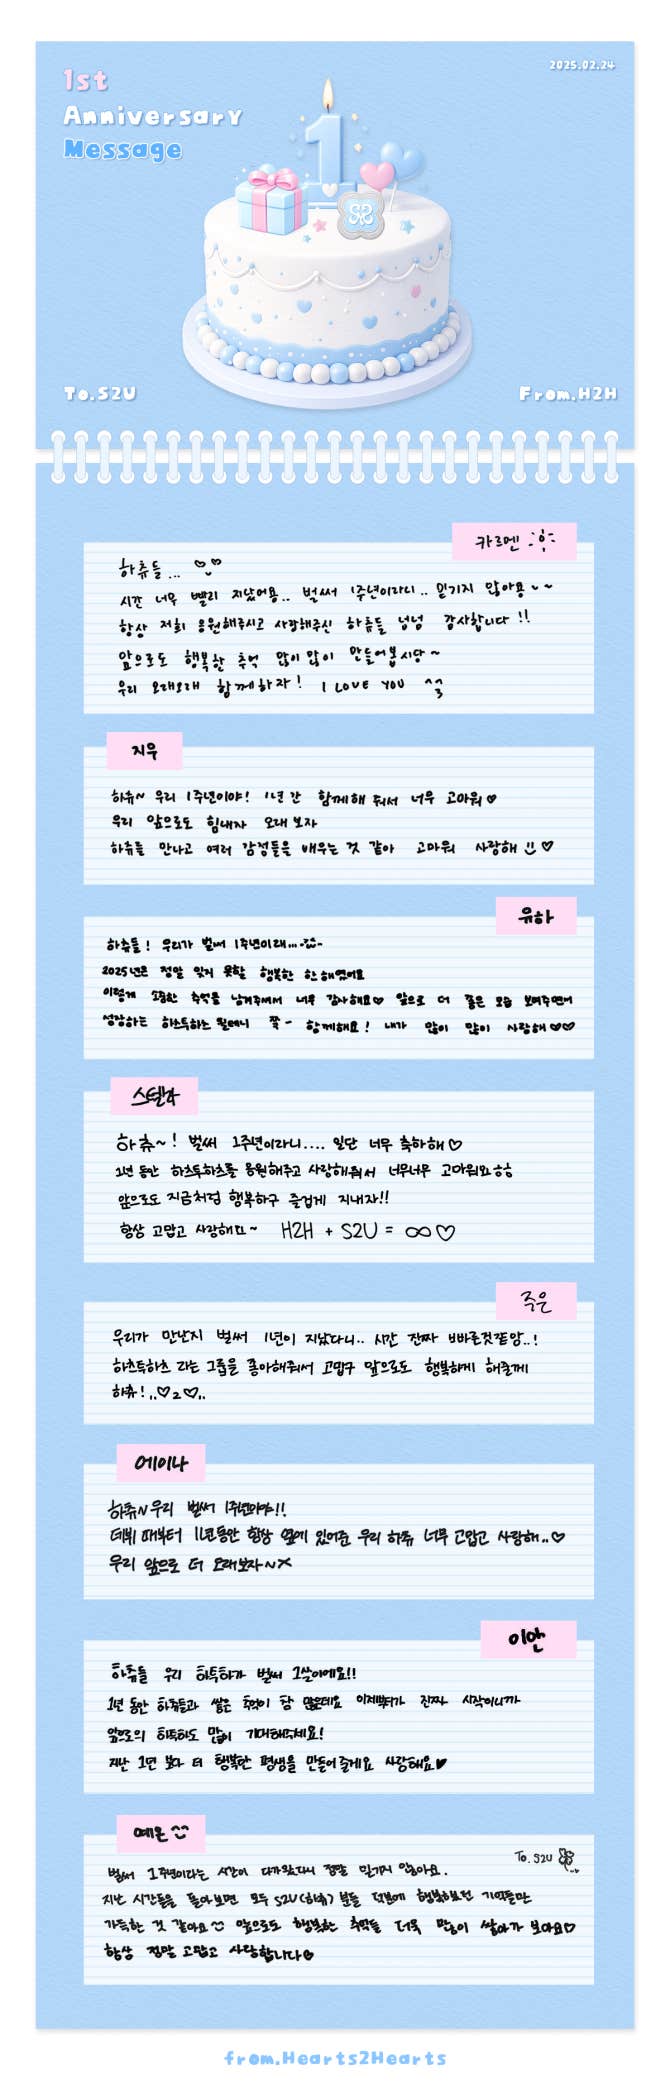 1st
2025.02.24
Anniversary
Message
1
S2
To.S2U
From.H2H
카르멘
하츄들...
시간 너무 빨리 지났어용.. 벌써 1주년이라니.. 믿기지 않아용~~
항상 저희 응원해주시고 사랑해주신 하츄들 넘넘 감사합니다!!
앞으로도 행복한 추억 많이많이 만들어봅시당~
우리 오래오래 함께하자! I LOVE YOU ^3^
지우
하츄~ 우리 1주년이야! 1년간 함께해 줘서 너무 고마워♥
우리 앞으로도 힘내자 오래보자
하츄들 만나고 여러 감정들을 배우는 것 같아 고마워 사랑해 ♡
유하
하츄들! 우리가 벌써 1주년이래...
2025년은 정말 잊지 못할 행복한 한해였어요
이렇게 소중한 추억을 남겨주셔서 너무 감사해요♡ 앞으로 더 좋은 모습 보여주면서
성장하는 하츠투하츠 될테니 쭉- 함께해요! 내가 많이 많이 사랑해♡♡
스텔라
하츄~! 벌써 1주년이라니.... 일단 너무 축하해♡
1년 동안 하츠투하츠를 응원해주고 사랑해줘서 너무너무 고마워요ㅎㅎ
앞으로도 지금처럼 행복하구 즐겁게 지내자!!
항상 고맙고 사랑해요~ H2H + S2U = ∞♡
주은
우리가 만난지 벌써 1년이 지났다니.. 시간 진짜 빠른것같앙..!
하츠투하츠 라는 그룹을 좋아해줘서 고맙구 앞으로도 행복하게 해줄게
하츄!..♡2♡..
에이나
하츄~우리 벌써 1주년이야!!
데뷔 때부터 1년동안 항상 옆에 있어준 우리 하츄 너무 고맙고 사랑해..♡
우리 앞으로 더 오래보자~
이안
하츄들 우리 하투하가 벌써 1살이에요!!
1년 동안 하츄들과 쌓은 추억이 참 많은데요 이제부터가 진짜 시작이니까
앞으로의 하투하도 많이 기대해주세요!
지난 1년 보다 더 행복한 평생을 만들어줄게요 사랑해요♥
예온
To. S2U
벌써 1주년이라는 시간이 다가왔다니 정말 믿기지 않아요.
지난 시간들을 돌아보면 모두 S2U(하츄) 분들 덕분에 행복했었던 기억들만
가득한 것 같아요 앞으로도 행복한 추억들 더욱 많이 쌓아가 보아요♡
항상 정말 고맙고 사랑합니다♥
from.Hearts2Hearts